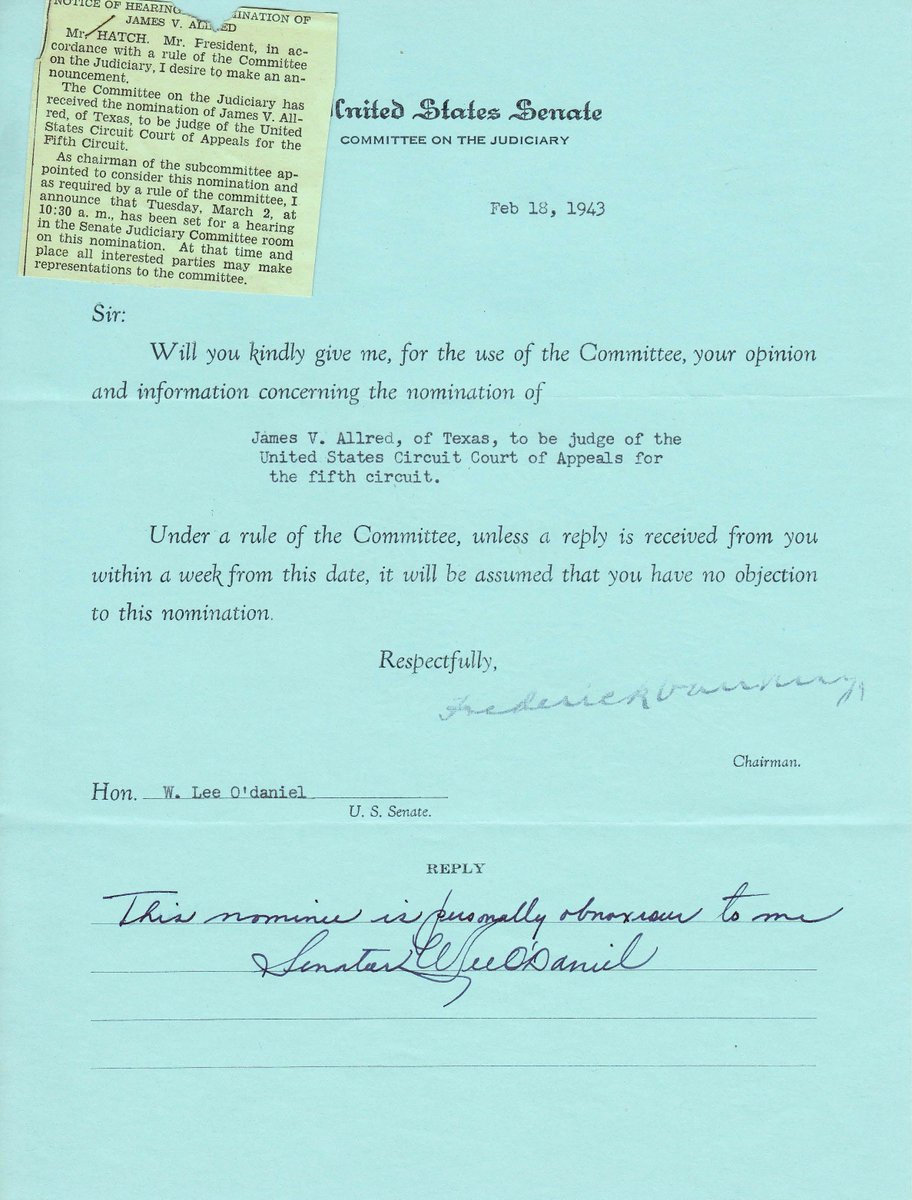 NOTICE OF HEARING INATION OF
JAMES V. ALLRED
Mr. HATCH. Mr. President, in ac-
cordance with a rule of the Committee
on the Judiciary, I desire to make an an-
nouncement.
The Committee on the Judiciary has
received the nomination of James V. All-
red, of Texas, to be judge of the United
States Circuit Court of Appeals for the
Fifth Circuit.
As chairman of the subcommittee ap-
pointed to consider this nomination and
as required by a rule of the committee, I
announce that Tuesday, March 2, at
10:30 a. m., has been set for a hearing
in the Senate Judiciary Committee room
on this nomination. At that time and
place all interested parties may make
representations to the committee.
United States Senate
COMMITTEE ON THE JUDICIARY
Feb 18, 1943
Sir:
Will you kindly give me, for the use of the Committee, your opinion
and information concerning the nomination of
James V. Allred, of Texas, to be judge of the
United States Circuit Court of Appeals for
the fifth circuit.
Under a rule of the Committee, unless a reply is received from you
within a week from this date, it will be assumed that you have no objection
to this nomination.
Respectfully,
Frederick VanNuys
Chairman.
Hon. W. Lee O'daniel
U. S. Senate.
REPLY
This nominee is personally obnoxious to me
Senator W Lee O'Daniel